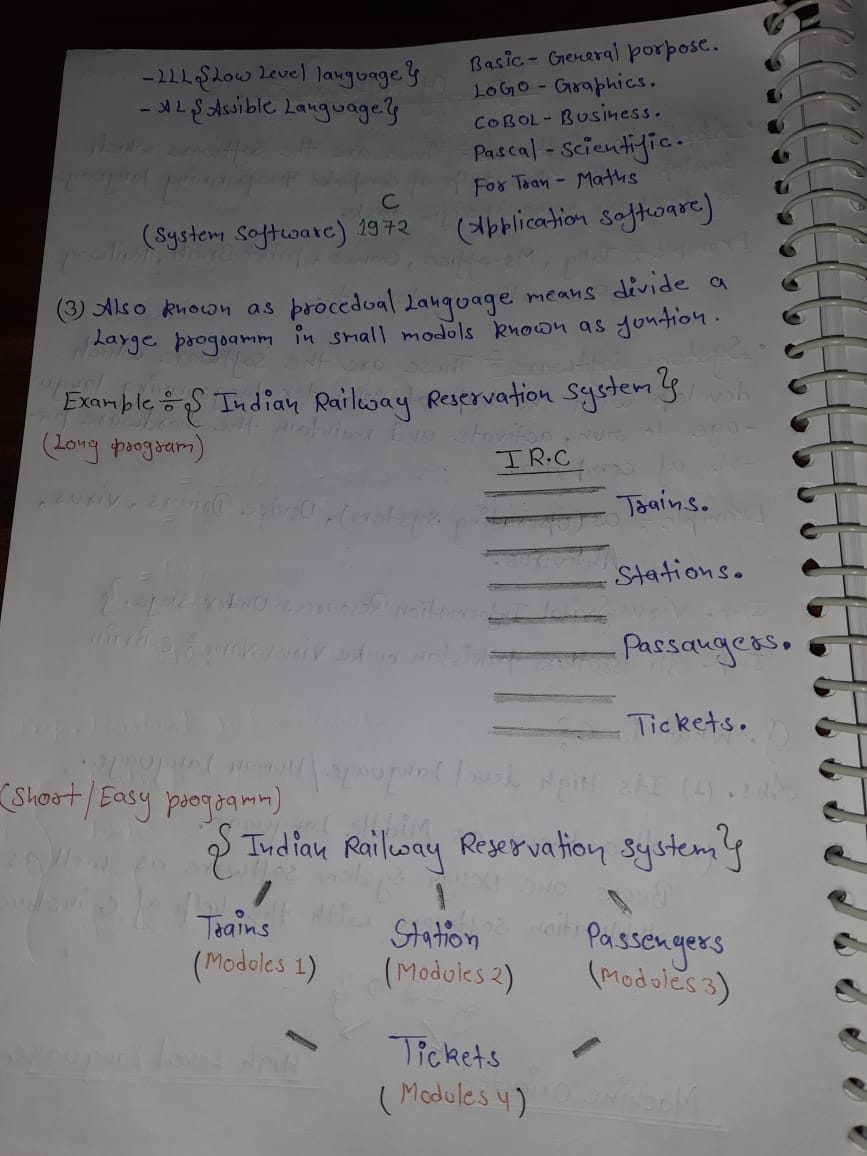 -LLL {Low Level language}
- AL {Assible Language}
Basic - General porpose.
LOGO - Graphics.
COBOL - Business.
Pascal - Scientific.
For Tran - Maths
C
(System Software) 1972 (Application Software)
(3) Also known as procedual Language means divide a
Large progoamm in small modols known as fontion.
Example ÷ { Indian Railway Reservation System }
(Long program)
I R.C
Trains.
Stations.
Passangers.
Tickets.
(Short/Easy programm)
{ Indian Railway Reservation System }
Trains Station Passengers
(Modoles 1) (Modoles 2) (Modoles 3)
Tickets
(Modoles 4)